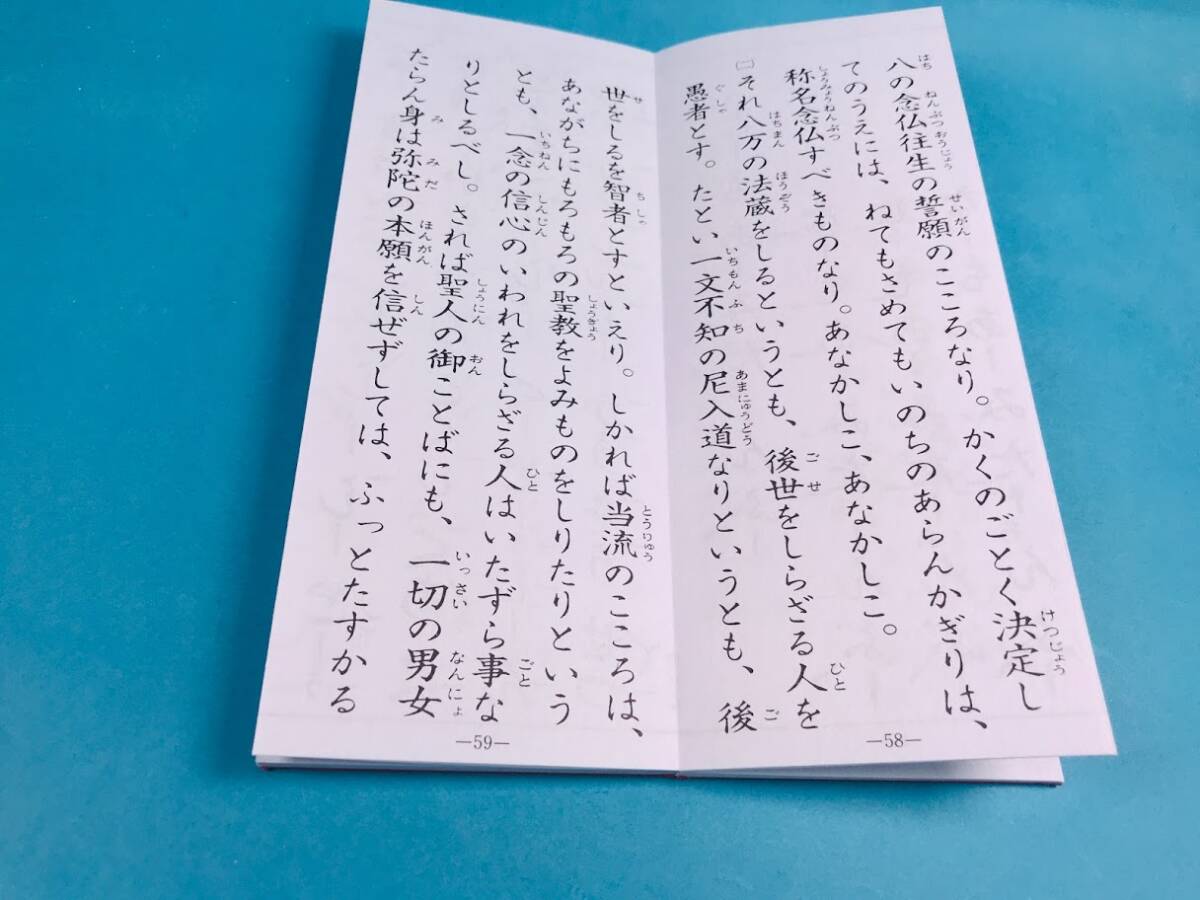 八の念仏往生の誓願のこころなり。かくのごとく決定し
てのうえには、ねてもさめてもいのちのあらんかぎりは、
称名念仏すべきものなり。あなかしこ、あなかしこ。
㈡それ八万の法蔵をしるというとも、後世をしらざる人を
愚者とす。たとい一文不知の尼入道なりというとも、後
—58—
世をしるを智者とすといえり。しかれば当流のこころは、
あながちにもろもろの聖教をよみものをしりたりという
とも、一念の信心のいわれをしらざる人はいたずら事な
りとしるべし。されば聖人の御ことばにも、一切の男女
たらん身は弥陀の本願を信ぜずしては、ふっとたすかる
—59—